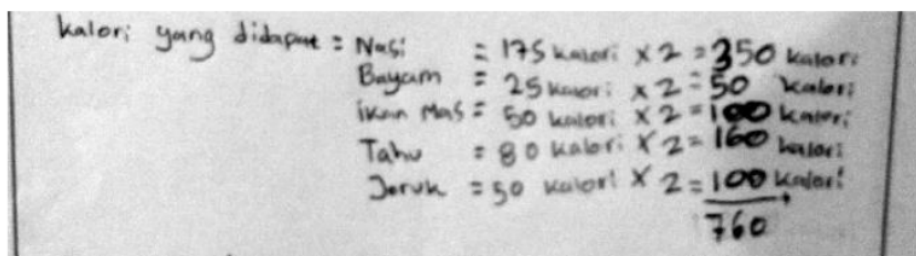 kalori yang didapat = Nasi = 175 kalori x 2 = 350 kalori
Bayam = 25 kalori x 2 = 50 kalori
ikan Mas = 50 kalori x 2 = 100 kalori
Tahu = 80 kalori x 2 = 160 kalori
Jeruk = 50 kalori x 2 = 100 kalori +
760